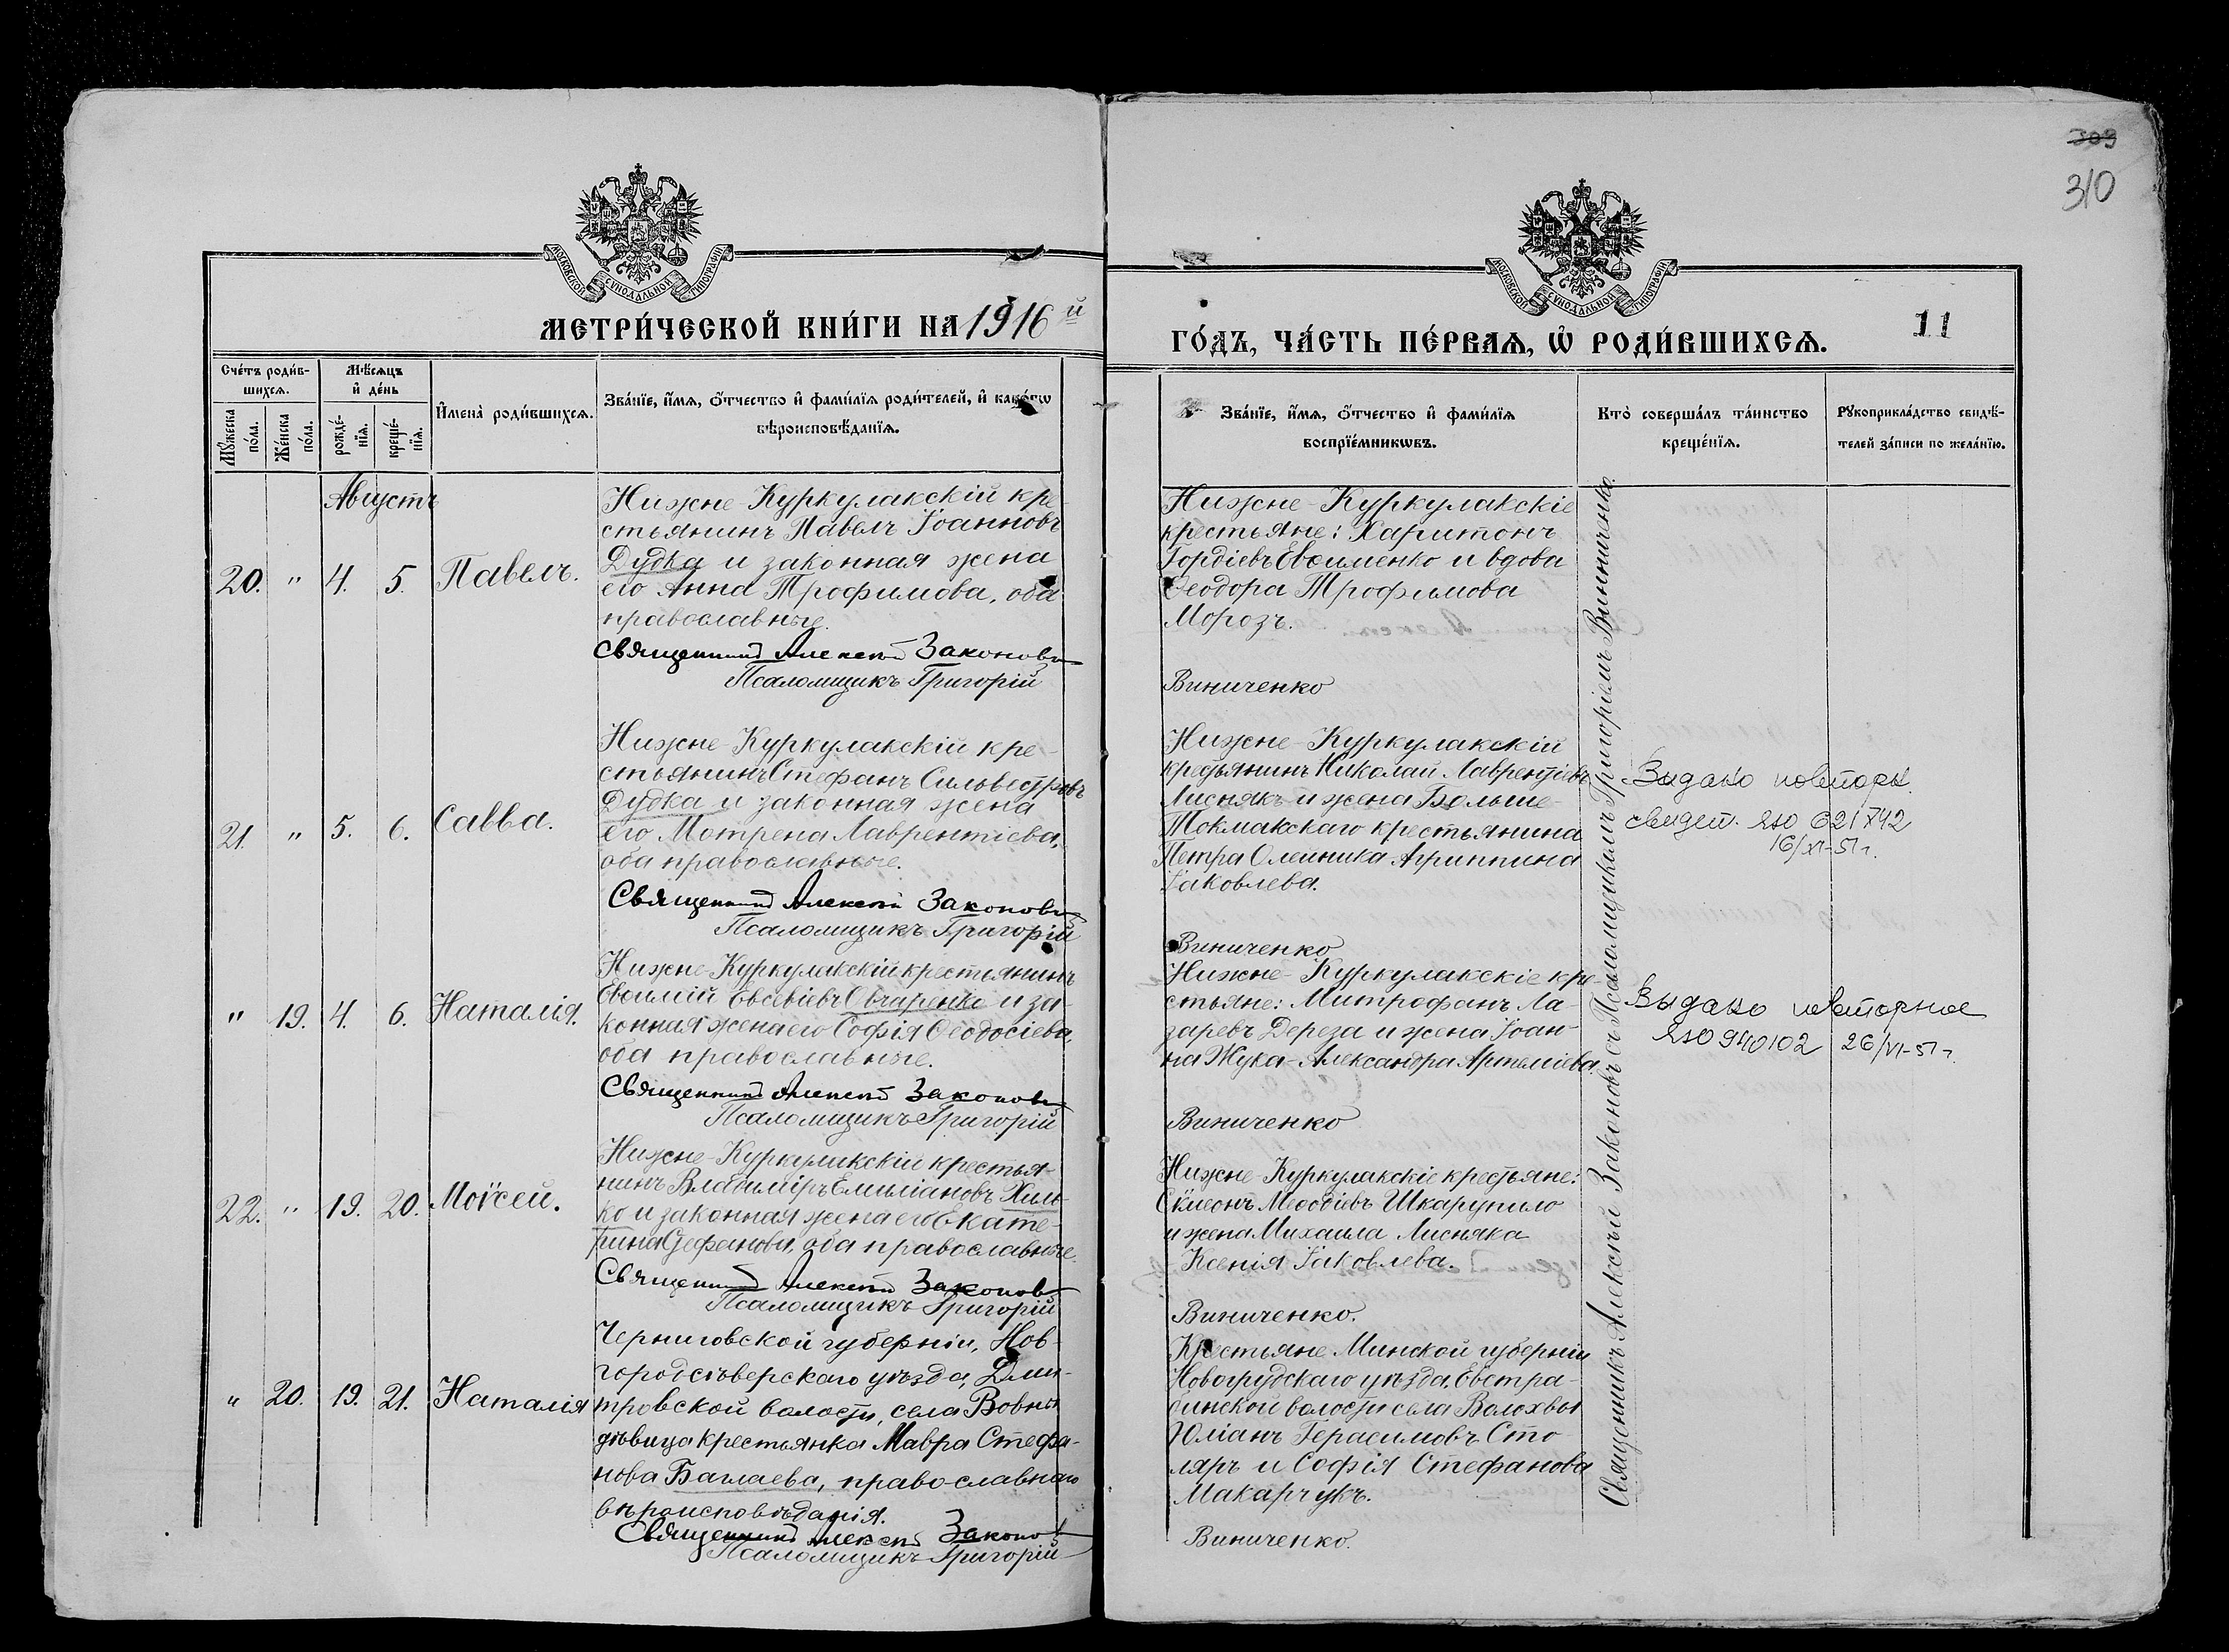 309
310
МОСКОВСКОЙ СѴНОДАЛЬНОЙ ТИПОГРАФІИ
МОСКОВСКОЙ СѴНОДАЛЬНОЙ ТИПОГРАФІИ
МЕТРИ́ЧЕСКОЙ КНИ́ГИ НА 1916й
ГО́ДЪ, ЧА́СТЬ ПЕ́РВАѦ, Ѡ҆ РОДИ́ВШИХСѦ.
11
Сче́тъ роди́в-
шихсѧ.
Мꙋ́жеска
по́ла.
Же́нска
по́ла.
Мѣ́сѧцъ
и҆ де́нь
рожде́-
нїѧ.
креще́-
нїѧ.
И҆мена̀ роди́вшихсѧ.
Зва́нїе, и҆́мѧ, ѻ҆́тчество и҆ фами́лїѧ роди́телей, и҆ како́гѡ
вѣроисповѣ́данїѧ.
Зва́нїе, и҆́мѧ, ѻ҆́тчество и҆ фами́лїѧ
воспрїе́мникѡвъ.
Кто̀ соверша́лъ та́инство
креще́нїѧ.
Рꙋкоприкла́дство свидѣ́-
телей за́писи по жела́нїю.
Августъ
20. " 4. 5. Павелъ.
Нижне-Куркулакскій кре-
стьянинъ Павелъ Іоанновъ
Дудка и законная жена
его Анна Трофимова, оба
православные.
Священникъ Алексѣй Законовъ
Псаломщикъ Григорій
Нижне-Куркулакскіе
крестьяне: Харитонъ
Гордіевъ Евѳименко и вдова
Ѳеодора Трофимова
Морозъ.
Виниченко
21. " 5. 6. Савва.
Нижне-Куркулакскій кре-
стьянинъ Стефанъ Сильвестровъ
Дудка и законная жена
его Мотрена Лаврентіева,
оба православные.
Священникъ Алексѣй Законовъ
Псаломщикъ Григорій
Нижне-Куркулакскій
крестьянинъ Николай Лаврентіевъ
Лиснякъ и жена Больше-
Токмакскаго крестьянина
Петра Олейника Агриппина
Іаковлева.
Виниченко
Выдано повторн.
свидет. ЯЮ 621742
16/XI-51г.
" 19. 4. 6. Наталія.
Нижне-Куркулакскій крестьянинъ
Евѳимій Евсевіевъ Овчаренко и за-
конная жена его Софія Ѳеодосіева,
оба православные.
Священникъ Алексѣй Законовъ
Псаломщикъ Григорій
Нижне-Куркулакскіе кре-
стьяне: Митрофанъ Ла-
заревъ Дереза и жена Іоан-
на Жука-Александра Артеміева.
Виниченко
Выдано повторное
ЯЮ 940102 26/VI-51г.
22. " 19. 20. Моѵсей.
Нижне-Куркулакскій крестья-
нинъ Владиміръ Емиліановъ Хиль-
ко и законная жена его Екате-
рина Стефанова, оба православные.
Священникъ Алексѣй Законовъ
Псаломщикъ Григорій
Нижне-Куркулакскіе крестьяне:
Сѵмеонъ Меѳодіевъ Шкарупило
и жена Михаила Лисняка
Ксенія Іаковлева.
Виниченко.
" 20. 19. 21. Наталія
Черниговской губерніи, Нов-
городсѣверскаго уѣзда, Дми-
тровской волости, села Вовны
дѣвица крестьянка Мавра Стефа-
нова Баглаева, православнаго
вѣроисповѣданія.
Священникъ Алексѣй Законов
Псаломщикъ Григорій
Крестьяне Минской губерніи
Новогрудскаго уѣзда, Евстра-
бинской волости села Волохвы
Юліанъ Герасимовъ Сто-
ляръ и Софія Стефанова
Макарчукъ.
Виниченко.
Священникъ Алексѣй Законовъ съ Псаломщикомъ Григоріемъ Виниченко.